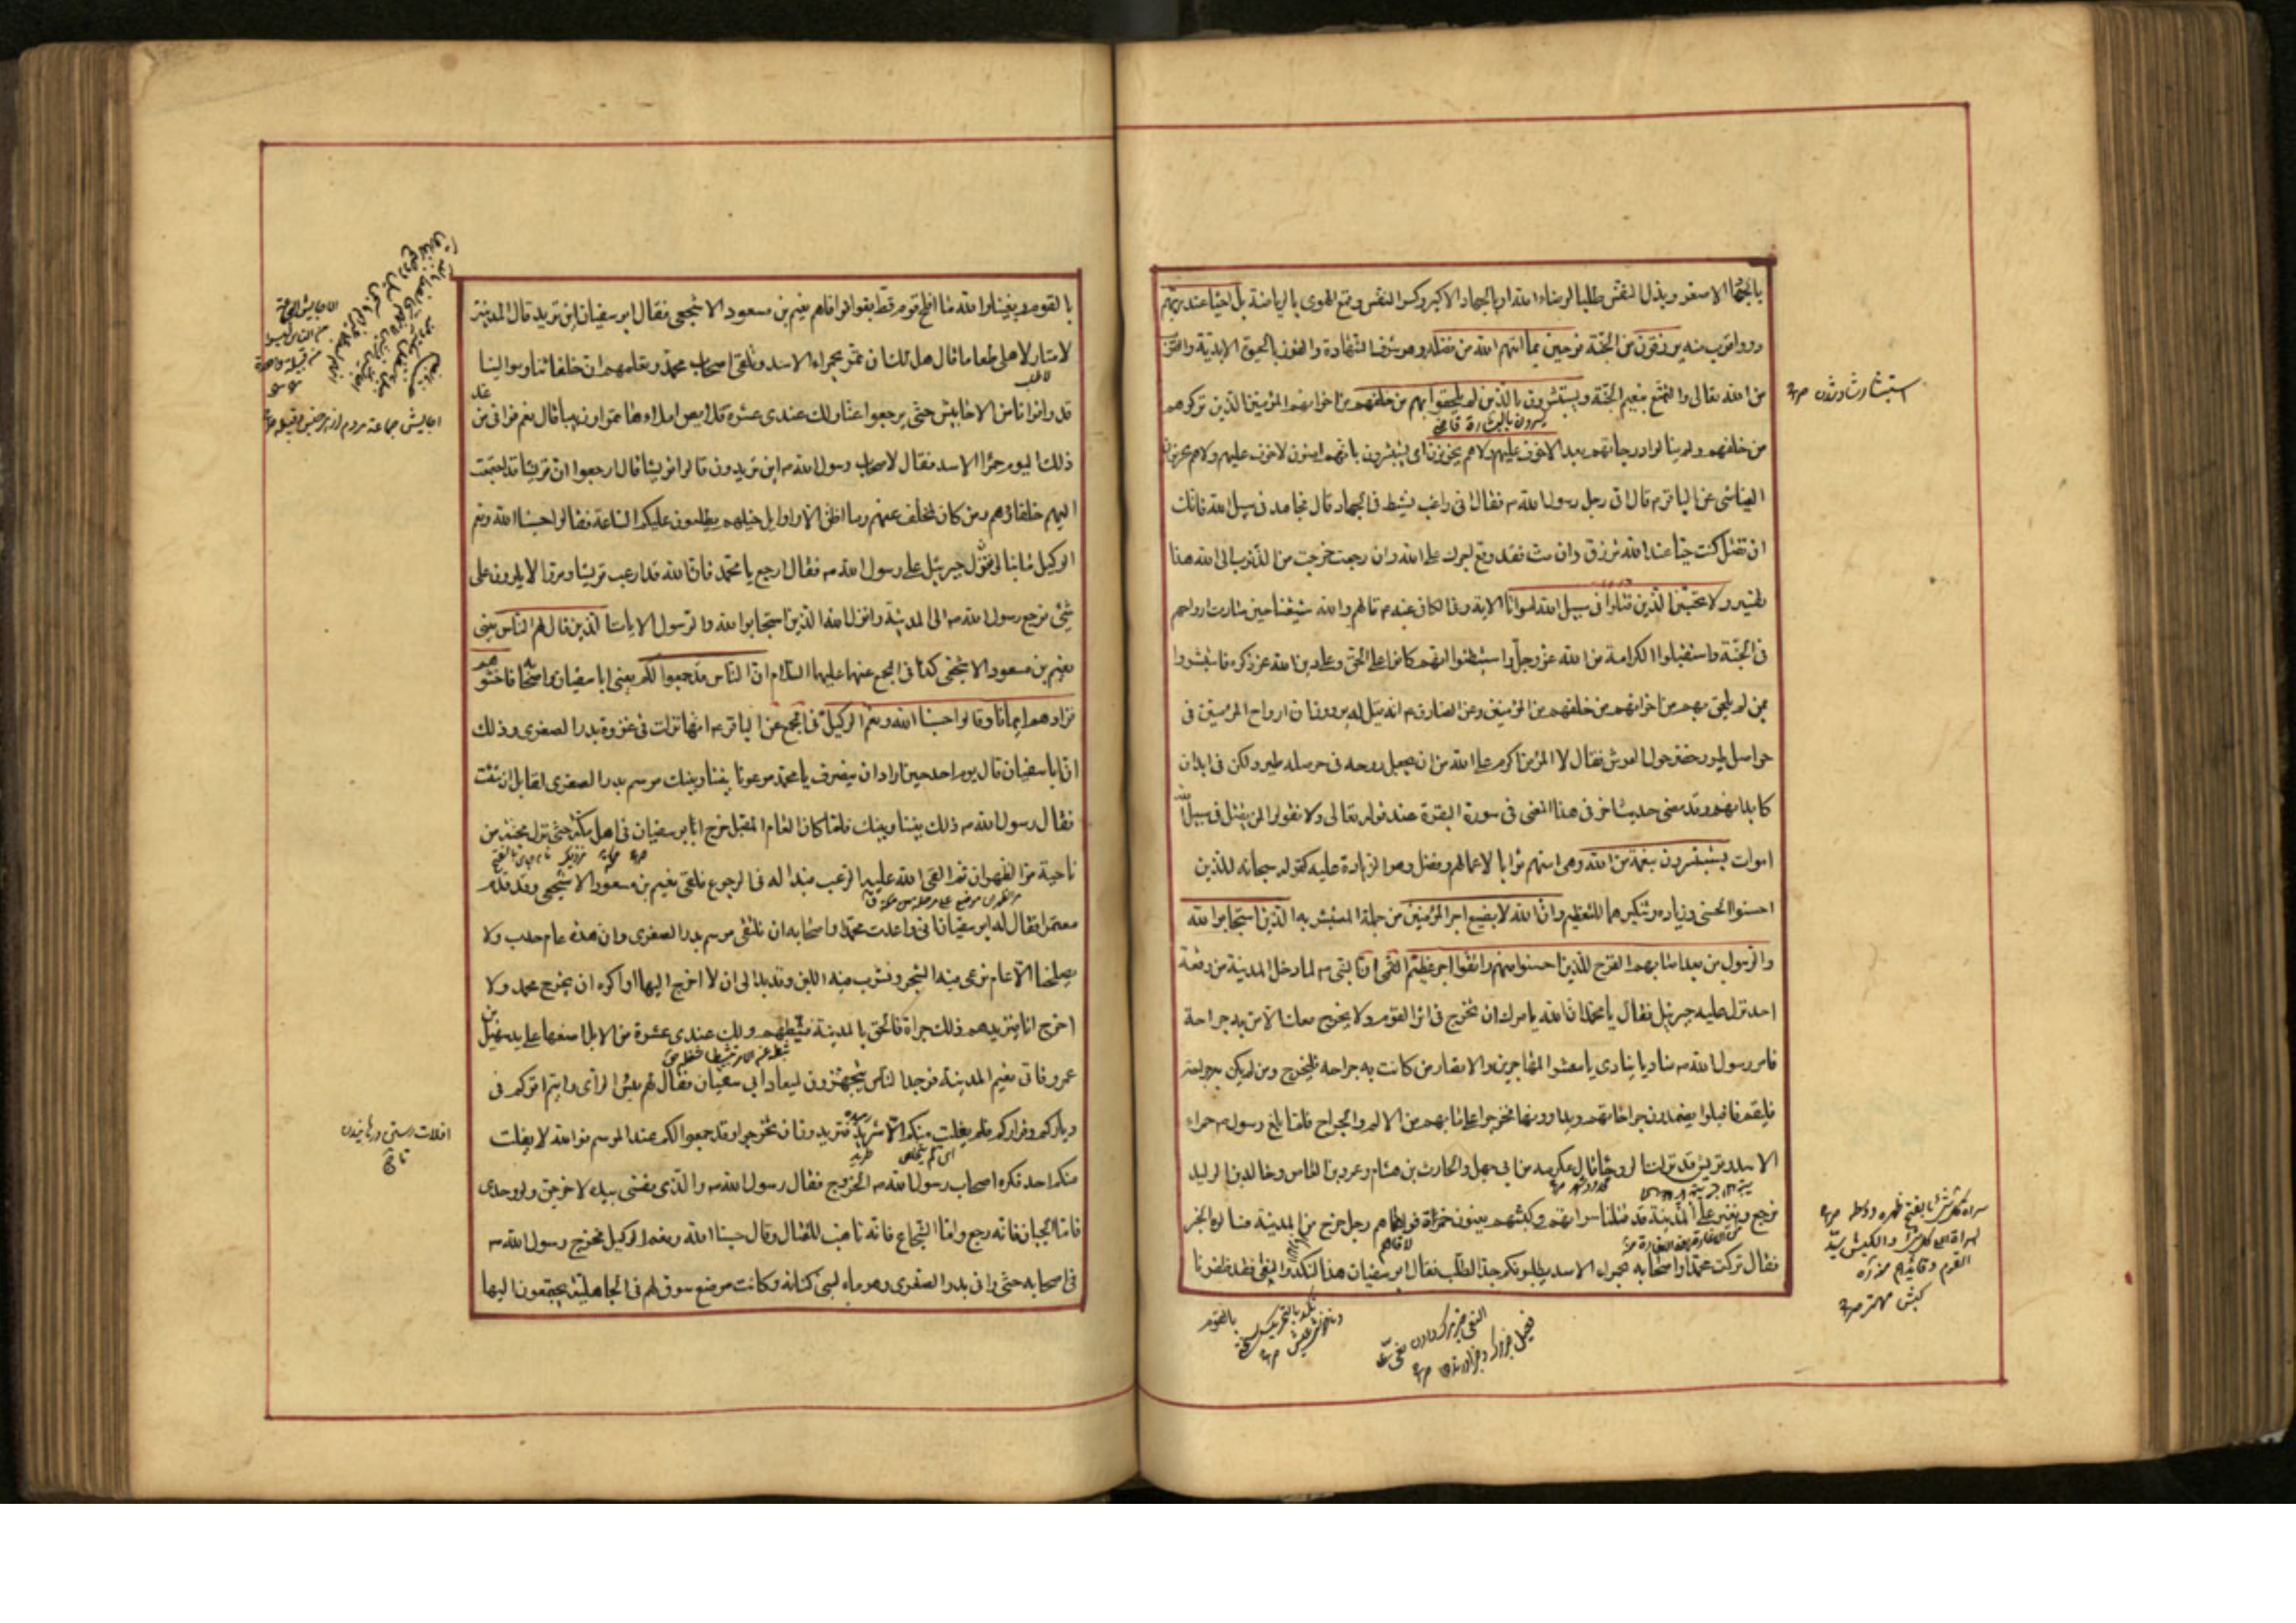 بالجهاد الاصغر وبذل النفس طلبا لرضاء الله او بالجهاد الاكبر وكسر النفس وقمع الهوى بالرياضة بل احياء عند ربهم
ذووا قرب منه يرزقون من الجنة فرحين بما اتيهم الله من فضله وهو شرف الشهادة والفوز بالحيوة الابدية والقرب
من الله تعالى والتمتع بنعيم الجنة ويستبشرون بالذين لم يلحقوا بهم من خلفهم من اخوانهم المؤمنين الذين تركوهم
يسرون بالبشارة قاضي
استبشار شاد شدن ص
من خلفهم ولم ينالوا درجاتهم بعد الا خوف عليهم ولا هم يحزنون اى يستبشرون بانهم امنون لا خوف عليهم ولا هم يحزنون
العياشى عن الباقر ع قال اتى رجل رسول الله ص فقال انى راغب نشيط فى الجهاد قال فجاهد فى سبيل الله فانك
ان تقتل كنت حيا عند الله ترزق وان مت فقد وقع اجرك على الله وان رجعت خرجت من الذنوب الى الله هذا
تفسير ولا تحسبن الذين قتلوا فى سبيل الله امواتا الاية وفى الكافى عنه ع قال هم والله شيعتنا حين صارت ارواحهم
فى الجنة واستقبلوا الكرامة من الله عز وجل واستيقنوا انهم كانوا على الحق وعلى دين الله عز ذكره فاستبشروا
بمن لم يلحق بهم من اخوانهم من خلفهم من المؤمنين وعن الصادق ع انه قيل له يروون ان ارواح المؤمنين فى
حواصل طيور خضر حول العرش فقال لا المؤمن اكرم على الله من ان يجعل روحه فى حوصلة طير ولكن فى ابدان
كابدانهم وقد مضى حديث اخر فى هذا المعنى فى سورة البقرة عند قوله تعالى ولا تقولوا لمن يقتل فى سبيل الله
اموات يستبشرون بنعمة من الله وهى امنهم ثوابا لاعمالهم وفضل وهو الزيادة عليه كقوله سبحانه للذين
احسنوا الحسنى وزيادة وتنكيرهما للتعظيم وان الله لا يضيع اجر المؤمنين من جملة المستبشر به الذين استجابوا لله
والرسول من بعد ما اصابهم القرح للذين احسنوا منهم واتقوا اجر عظيم القمى ان النبى ص لما دخل المدينة من وقعة
احد نزل عليه جبرئيل فقال يا محمد ان الله يامرك ان تخرج فى اثر القوم ولا يخرج معك الا من به جراحة
فامر رسول الله ص مناديا ينادى يا معشر المهاجرين والانصار من كانت به جراحة فليخرج ومن لم يكن به جراحة
فليقم فاقبلوا يضمدون جراحاتهم ويداوونها فخرجوا على ما بهم من الالم والجراح فلما بلغ رسول ص حمراء
الاسد وقريش قد نزلت الروحا قال عكرمة بن ابى جهل والحارث بن هشام وعمرو بن العاص وخالد بن الوليد
نرجع ونغير على المدينة قد قتلنا سراتهم وكبشهم يعنون حمزة فوافاهم رجل خرج من المدينة فسالوه الخبر
فقال تركت محمدا واصحابه بحمراء الاسد يطلبونكم جد الطلب فقال ابو سفيان هذا النكد والبغى فقد ظفرنا
بالقوم
بالقوم وبغينا والله ما افلح قوم قط بغوا فوافاهم نعيم بن مسعود الاشجعى فقال ابو سفيان اين تريد قال المدينة
لامتار لاهلى طعاما قال هل لك ان تمر بحمراء الاسد وتلقى اصحاب محمد وتعلمهم ان حلفائنا وموالينا
قد وافونا من الاحابيش حتى يرجعوا عنا ولك عندى عشرة قلايص املاءها تمرا وزبيبا قال نعم فوافى من
غد
ذلك اليوم حمراء الاسد فقال لاصحاب رسول الله ص اين تريدون قالوا قريشا قال ارجعوا ان قريشا قد اجتمعت
اليهم حلفاؤهم ومن كان تخلف عنهم وما اظن الا اوايل خيلهم يطلعون عليكم الساعة فقالوا حسبنا الله ونعم
الوكيل ما نبالى فنزل جبرئيل على رسول الله ص فقال ارجع يا محمد فان الله قد ارعب قريشا ومروا لا يلوون على
شىء فرجع رسول الله ص الى المدينة وانزل الله الذين استجابوا لله والرسول الايات الذين قال لهم الناس يعنى
نعيم بن مسعود الاشجعى كذا فى المجمع عنهما عليهما السلام ان الناس قد جمعوا لكم يعنى ابا سفيان واصحابه فاخشوهم
فزادهم ايمانا وقالوا حسبنا الله ونعم الوكيل فى المجمع عن الباقر ع انها نزلت فى غزوة بدر الصغرى وذلك
ان ابا سفيان قال يوم احد حين اراد ان ينصرف يا محمد موعدنا بيننا وبينك موسم بدر الصغرى لقابل ان شئت
فقال رسول الله ص ذلك بيننا وبينك فلما كان العام المقبل خرج ابو سفيان فى اهل مكة حتى نزل مجنة من
ناحية مر الظهران ثم القى الله عليه الرعب فبدا له فى الرجوع فلقى نعيم بن مسعود الاشجعى وقد قدم
معتمرا فقال له ابو سفيان انى واعدت محمدا واصحابه ان نلتقى موسم بدر الصغرى وان هذه عام جدب ولا
يصلحنا الا عام نرعى فيه الشجر ونشرب فيه اللبن وقد بدا لى ان لا اخرج اليها واكره ان يخرج محمد ولا
اخرج انا فيزيدهم ذلك جراة فالحق بالمدينة فثبطهم ولك عندى عشرة من الابل اضعها على يد سهيل بن
عمرو فاتى نعيم المدينة فوجد الناس يتجهزون لميعاد ابى سفيان فقال لهم بئس الراى رايتم اتوكم فى
دياركم وقراركم فلم يفلت منكم الا شريد فتريدون ان تخرجوا وقد جمعوا لكم عند الموسم فوالله لا يفلت
افلات رستن ورهانيدن
تاج
منكم احد فكره اصحاب رسول الله ص الخروج فقال رسول الله ص والذى نفسى بيده لاخرجن ولو وحدى
فاما الجبان فانه رجع واما الشجاع فانه تاهب للقتال وقال حسبنا الله ونعم الوكيل فخرج رسول الله ص
فى اصحابه حتى وافى بدر الصغرى وهو ماء لبنى كنانه وكانت موضع سوق لهم فى الجاهلية يجتمعون اليها